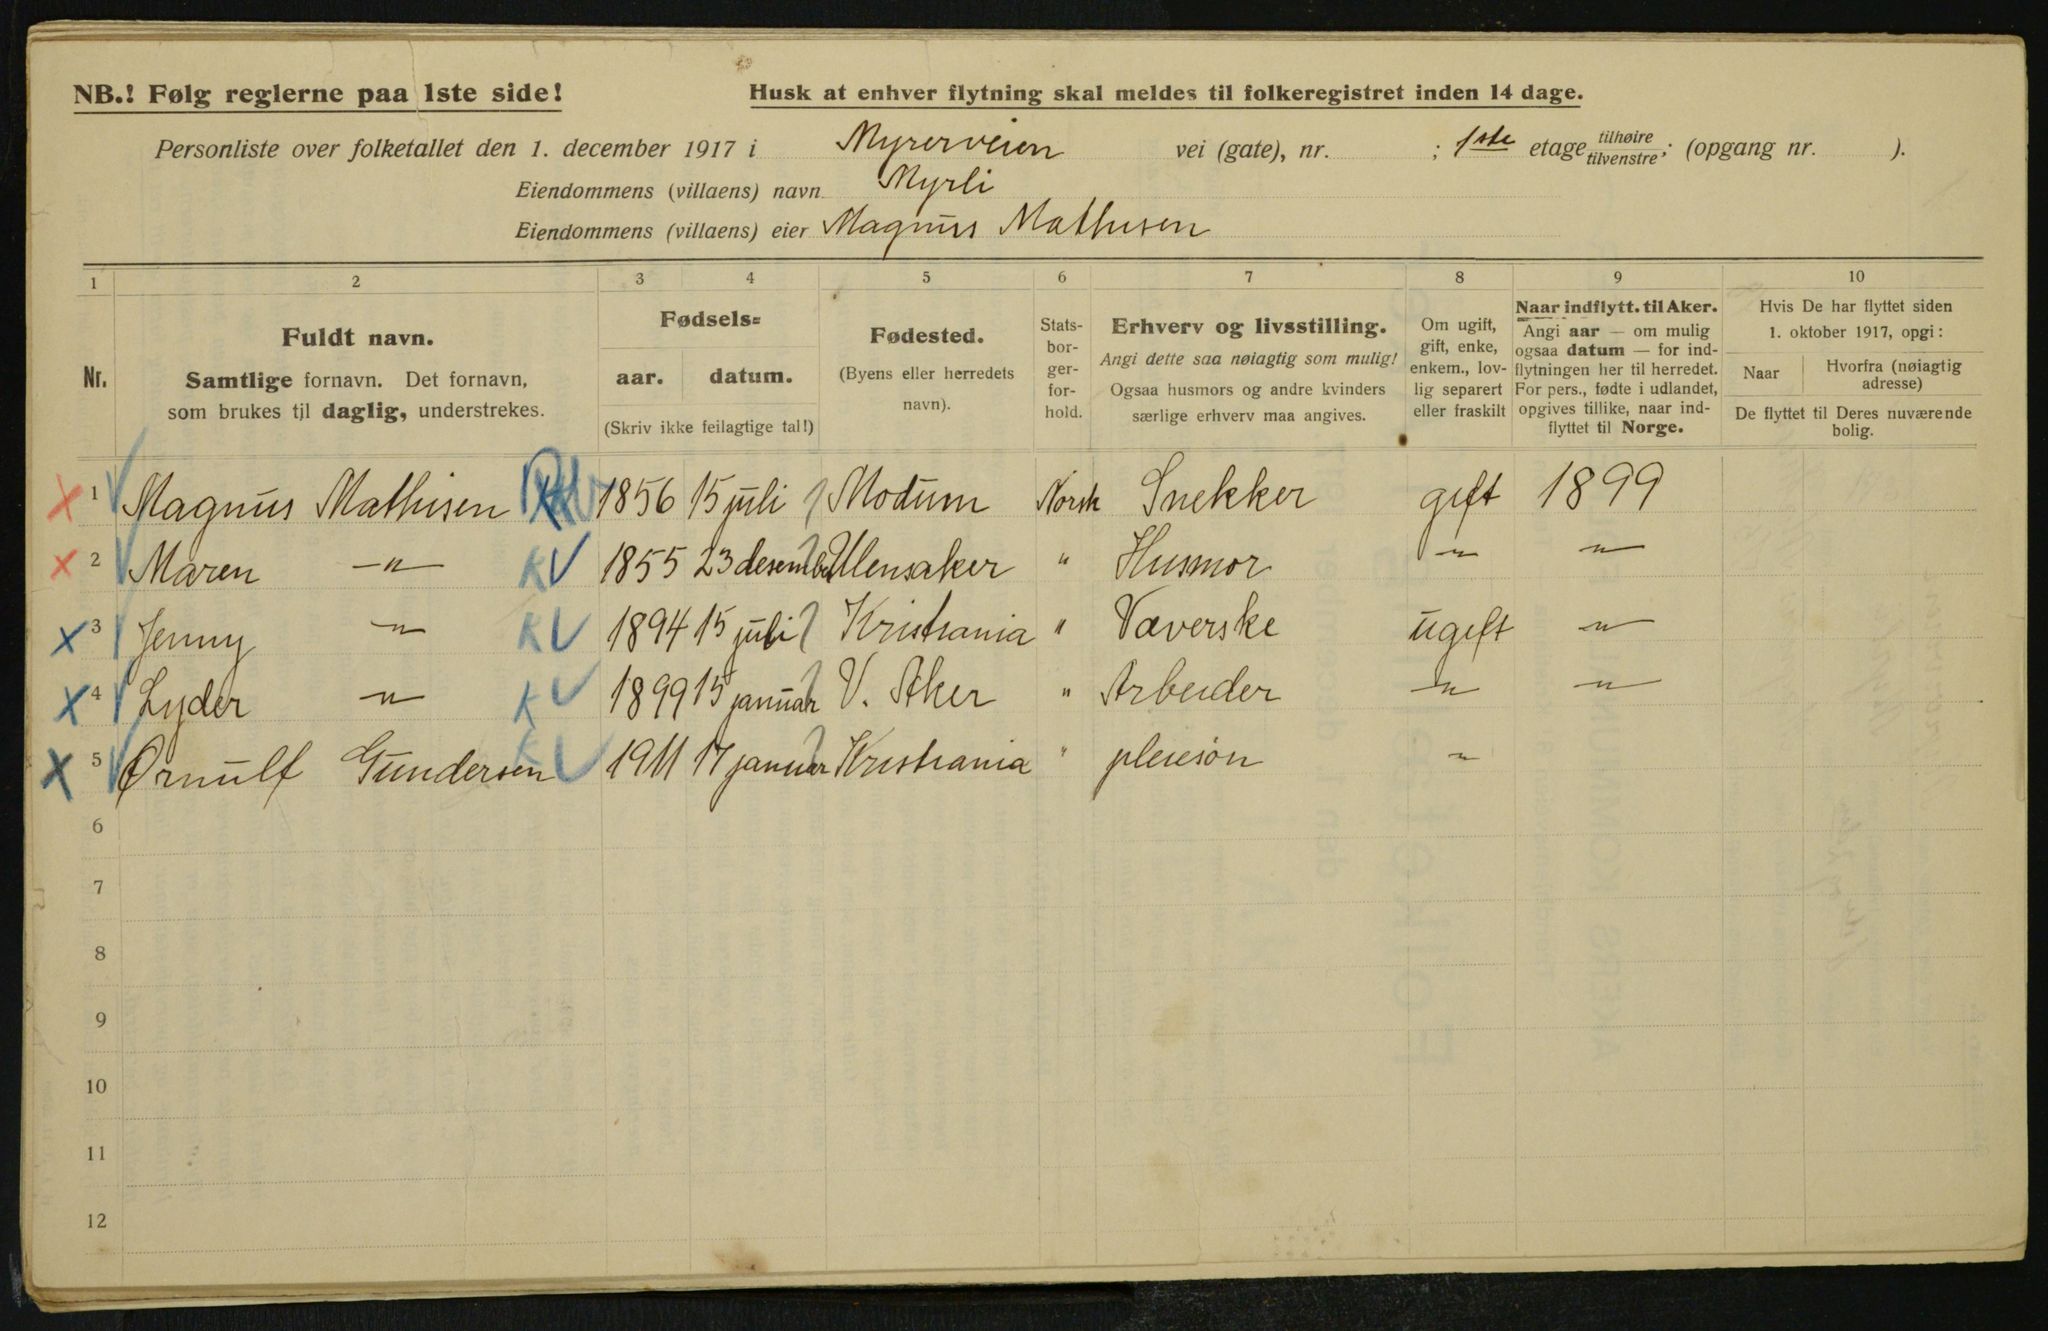 NB.! Følg reglerne paa 1ste side!
Husk at enhver flytning skal meldes til folkeregistret inden 14 dage.
Personliste over folketallet den 1. december 1917 i Myrerveien vei (gate), nr. ; 1ste etage tilhøire tilvenstre; (opgang nr. ).
Eiendommens (villaens) navn Myrli
Eiendommens (villaens) eier Magnus Mathisen
1 2 3 4 5 6 7 8 9 10
Nr.
Fuldt navn.
Samtlige fornavn. Det fornavn,
som brukes til daglig, understrekes.
Fødsels=
aar. datum.
(Skriv ikke feilagtige tal!)
Fødested.
(Byens eller herredets
navn).
Stats-
bor-
ger-
for-
hold.
Erhverv og livsstilling.
Angi dette saa nøiagtig som mulig!
Ogsaa husmors og andre kvinders
særlige erhverv maa angives.
Om ugift,
gift, enke,
enkem., lov-
lig separert
eller fraskilt
Naar indflytt. til Aker.
Angi aar — om mulig
ogsaa datum — for ind-
flytningen her til herredet.
For pers., fødte i udlandet,
opgives tillike, naar ind-
flyttet til Norge.
Hvis De har flyttet siden
1. oktober 1917, opgi:
Naar
Hvorfra (nøiagtig
adresse)
De flyttet til Deres nuværende
bolig.
X 1 Magnus Mathisen 1856 15 juli Modum Norsk Snekker gift 1899
X 2 Maren — " — KV 1855 23 desember Ulensaker " Husmor — " — — " —
X 3 Jenny — " — KV 1894 15 juli Kristiania " Væverske ugift — " —
X 4 Lyder — " — KV 1899 15 januar V. Aker " Arbeider — " — — " —
X 5 Ørnulf Gundersen KV 1911 17 januar Kristiania " pleiesøn — " —
6
7
8
9
10
11
12